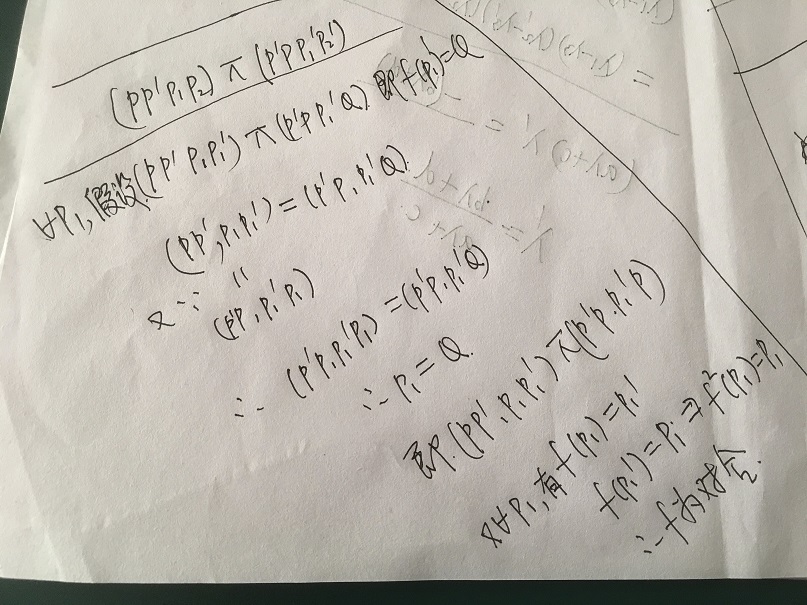 (PP'P₁P₂) ⊼ (P'PP₁'P₂')
∀P₁, 假设(PP'P₁P₁') ⊼ (P'PP₁'Q) 即f(P₁')=Q
(PP', P₁P₁') = (P'P, P₁'Q)
又∵ "
(P'P, P₁'P₁)
∴ (P'P, P₁'P₁) = (P'P, P₁'Q)
∴ P₁ = Q.
即(PP', P₁P₁') ⊼ (P'P, P₁'P)
又∀P₁, 有f(P₁)=P₁'
f(P₁')=P₁ ⇒ f²(P₁)=P₁
∴ f为对合.